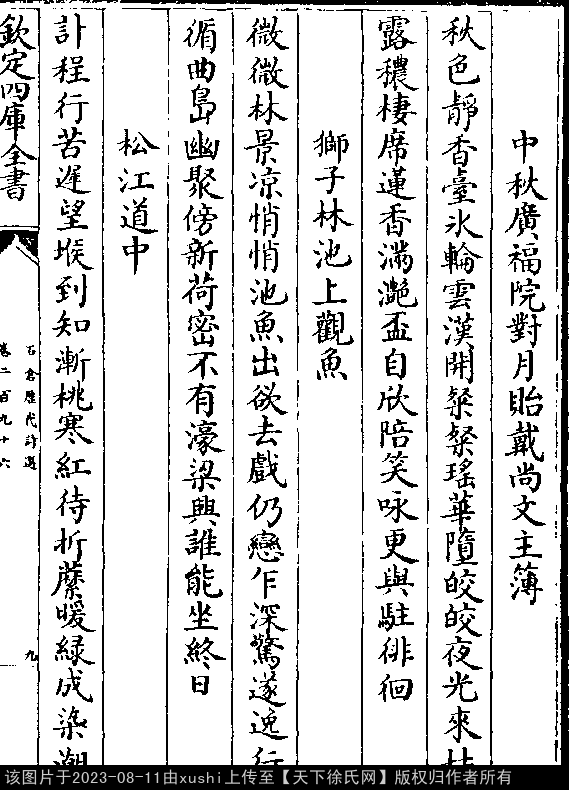 中秋廣福院對月貽戴尚文主簿
秋色靜香臺氷輪雲漢開粲粲瑤華墮皎皎夜光來
露穠棲席蓮香滿灔盃自欣陪笑咏更與駐徘徊
獅子林池上觀魚
微微林景凉悄悄池魚出欲去戲仍戀乍深驚遂逸行
循曲島幽聚傍新荷密不有濠梁興誰能坐終日
松江道中
計程行苦遲望堠到知漸桃寒紅待折蘪暖緑成染潮
石倉歷代詩選
卷二百九十六
九
欽定四庫全書
该图片于2023-08-11由xushi上传至【天下徐氏网】版权归作者所有